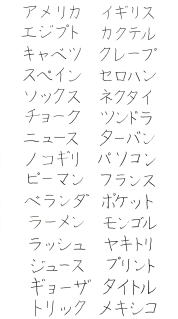 アメリカ イギリス
エジプト カクテル
キャベツ クレープ
スペイン セロハン
ソックス ネクタイ
チョーク ツンドラ
ニュース ターバン
ノコギリ パソコン
ピーマン フランス
ベランダ ポケット
ラーメン モンゴル
ラッシュ ヤキトリ
ジュース プリント
ギョーザ タイトル
トリック メキシコ